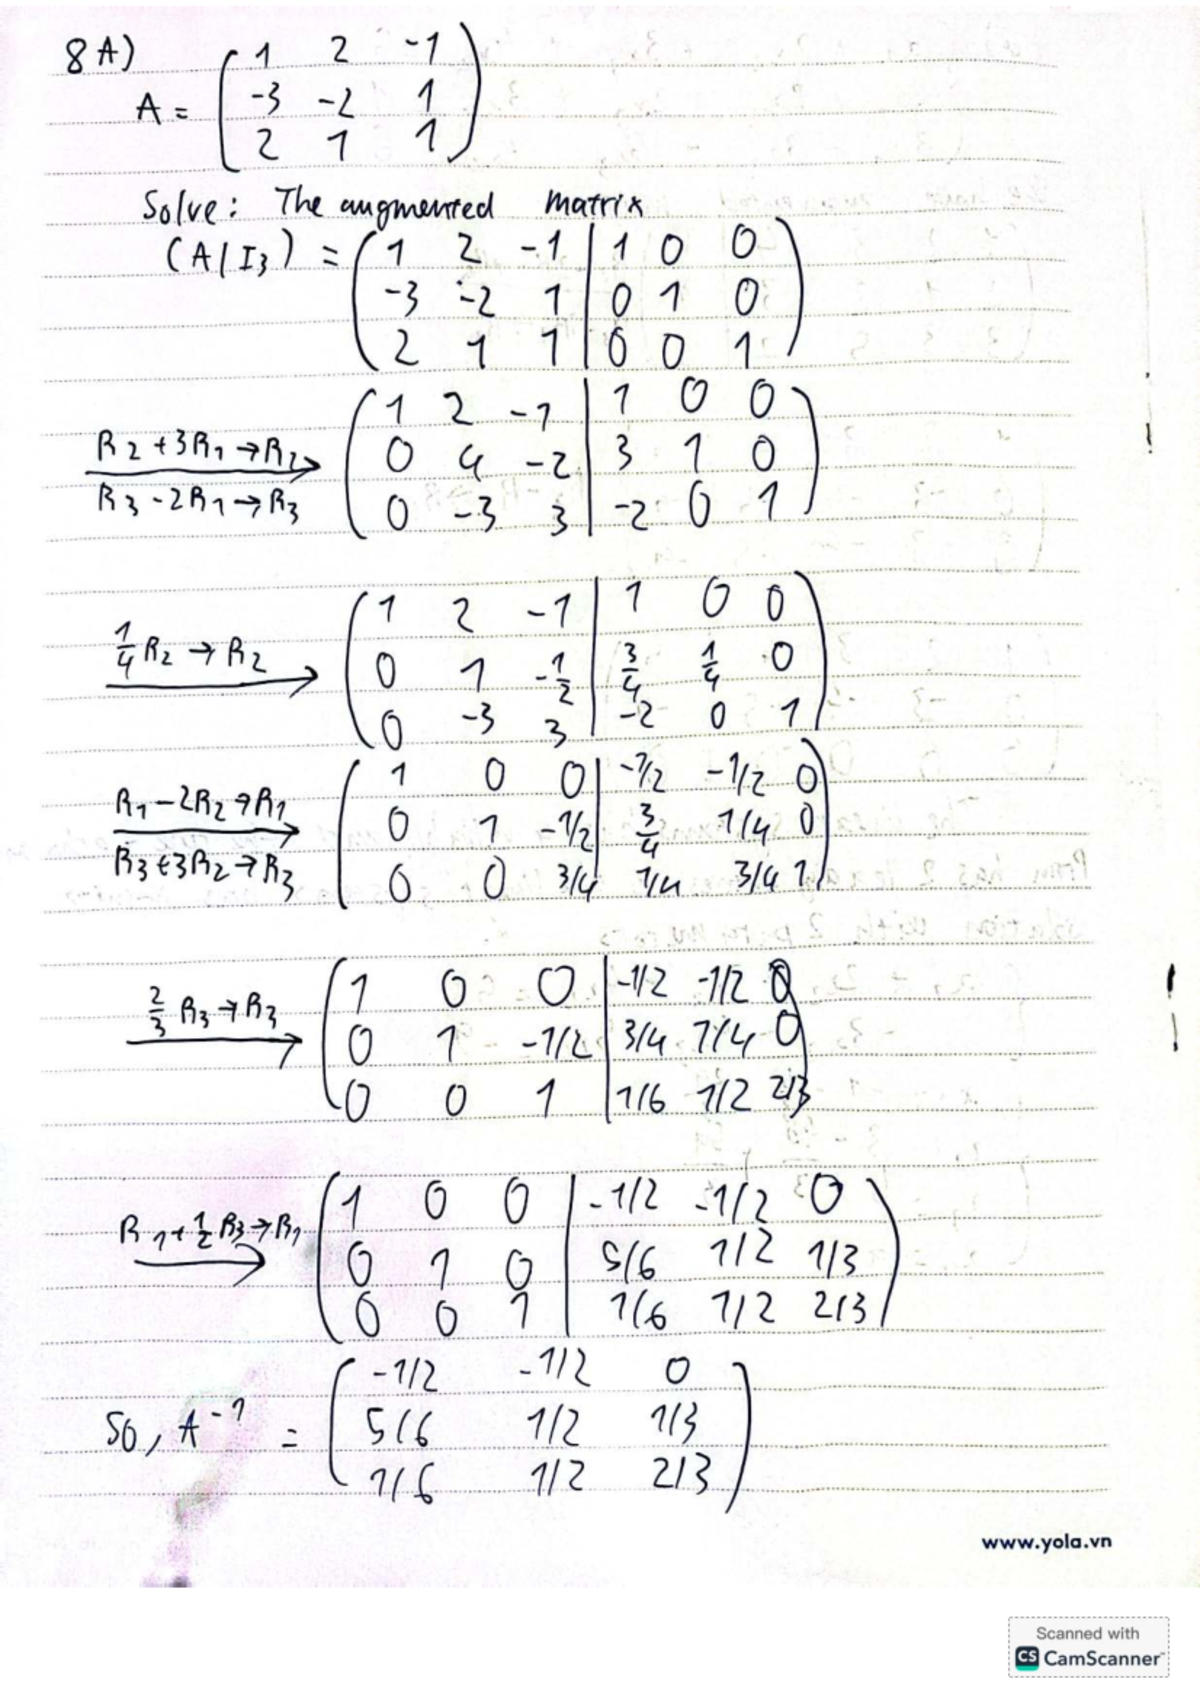 8A)
A = ( 1 2 -1
-3 -2 1
2 1 1 )
Solve: The augmented matrix
(A/I3) = ( 1 2 -1 | 1 0 0
-3 -2 1 | 0 1 0
2 1 1 | 0 0 1 )
R2 + 3R1 → R2
R3 - 2R1 → R3
( 1 2 -1 | 1 0 0
0 4 -2 | 3 1 0
0 -3 3 | -2 0 1 )
1/4 R2 → R2
( 1 2 -1 | 1 0 0
0 1 -1/2 | 3/4 1/4 0
0 -3 3 | -2 0 1 )
R1 - 2R2 → R1
R3 + 3R2 → R3
( 1 0 0 | -1/2 -1/2 0
0 1 -1/2 | 3/4 1/4 0
0 0 3/4 | 1/4 3/4 1 )
2/3 R3 → R3
( 1 0 0 | -1/2 -1/2 0
0 1 -1/2 | 3/4 1/4 0
0 0 1 | 1/6 1/2 2/3 )
R1 + 1/2 R3 → R1
( 1 0 0 | -1/2 -1/2 0
0 1 0 | 5/6 1/2 1/3
0 0 1 | 1/6 1/2 2/3 )
So, A^-1 = ( -1/2 -1/2 0
5/6 1/2 1/3
1/6 1/2 2/3 )
www.yola.vn
Scanned with
CS CamScanner